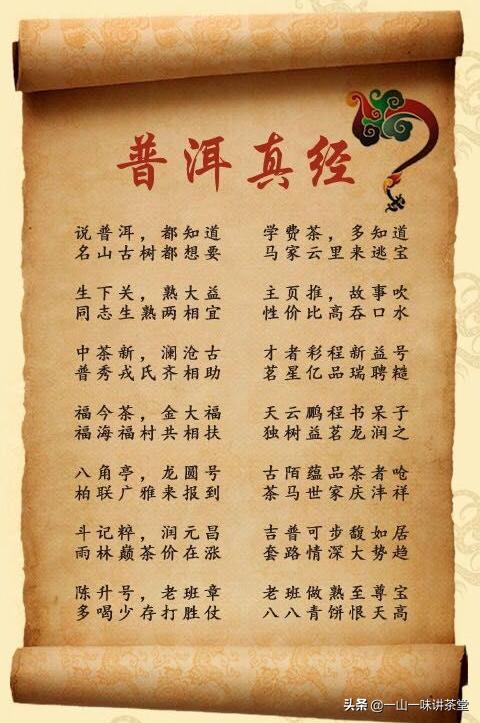 普洱真经
说普洱，都知道
名山古树都想要
生下关，熟大益
同志生熟两相宜
中茶新，澜沧古
普秀戎氏齐相助
福今茶，金大福
福海福村共相扶
八角亭，龙圆号
柏联广雅来报到
斗记粹，润元昌
雨林巅茶价在涨
陈升号，老班章
多喝少存打胜仗
学费茶，多知道
马家云里来逃宝
主页推，故事吹
性价比高吞口水
才者彩程新益号
茗星亿品瑞聘糙
天云鹏程书呆子
独树益茗龙润之
古陌蕴品茶者呛
茶马世家庆沣祥
吉普可步馥如居
套路情深大势趋
老班做熟至尊宝
八八青饼恨天高
头条 @一山一味讲茶堂